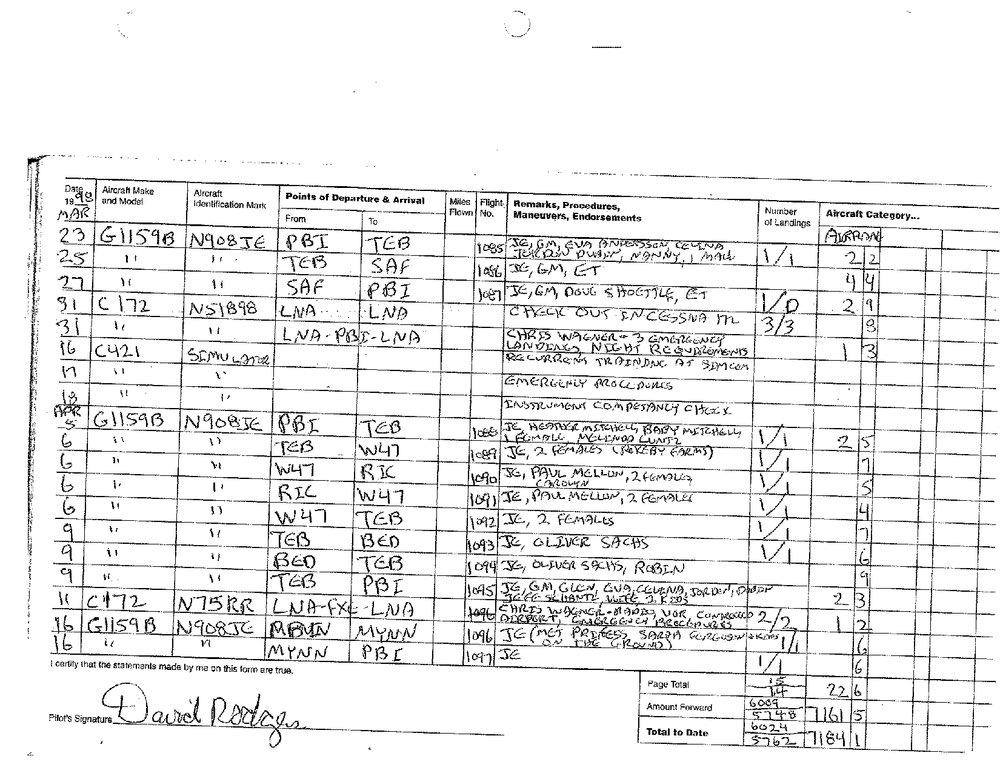 Date 19 98 Aircraft Make and Model Aircraft Identification Mark Points of Departure & Arrival Miles Flown Flight No. Remarks, Procedures, Maneuvers, Endorsements Number of Landings Aircraft Category...
MAR From To AIRPLANE
23 G1159B N908JE PBI TEB 1085 JE, GM, EVA ANDERSSON, CELINA
JORDON DUBIN, NANNY, 1 MALE 1/1 2 2
25 " " TEB SAF 1086 JE, GM, ET 4 4
27 " " SAF PBI 1087 JE, GM, DOUG SHOETTLE, ET 1/0 2 9
31 C172 N51898 LNA LNA CHECK OUT IN CESSNA 172 3/3 8
31 " " LNA-PBI-LNA CHRIS WAGNER - 3 EMERGENCY
LANDINGS, NIGHT REQUIREMENTS 1 3
16 C421 SIMULATOR RECURRENT TRAINING AT SIMCOM
17 " " EMERGENCY PROCEDURES
18 " " INSTRUMENT COMPETANCY CHECK
APR
5 G1159B N908JE PBI TEB 1088 JE, HEATHER MITCHELL, BABY MITCHELL,
1 FEMALE, MELINDA LUNTZ 1/1 2 5
6 " " TEB W47 1089 JE, 2 FEMALES 1/1 7
6 " " W47 RIC 1090 JE, PAUL MELLON, 2 FEMALES
CAROLYN 1/1 5
6 " " RIC W47 1091 JE, PAUL MELLON, 2 FEMALES 4
6 " " W47 TEB 1092 JE, 2 FEMALES 1/1 7
9 " " TEB BED 1093 JE, OLIVER SACHS 1/1 6
9 " " BED TEB 1094 JE, OLIVER SACHS, ROBIN 9
9 " " TEB PBI 1095 JE, GM, GLEN, EVA, CELINA, JORDON, DUBIN
WIFE 2 KIDS 2 3
11 C172 N75RR LNA-FXE-LNA 1096 CHRIS WAGNER - VOR CONTROLLED
AIRPORT, EMERGENCY PROCEDURES 2/2 1 2
16 G1159B N908JE MYNN 1096 JE (MET PRINCESS SARAH FERGUSON + KIDS
ON THE GROUND) 1/1 6
16 " " MYNN PBI 1097 JE 1/1 6
I certify that the statements made by me on this form are true.
Page Total 15 14 22 6
Pilot's Signature David Rodgers
Amount Forward 6009 5748 7161 5
Total to Date 6024 5762 7184 1